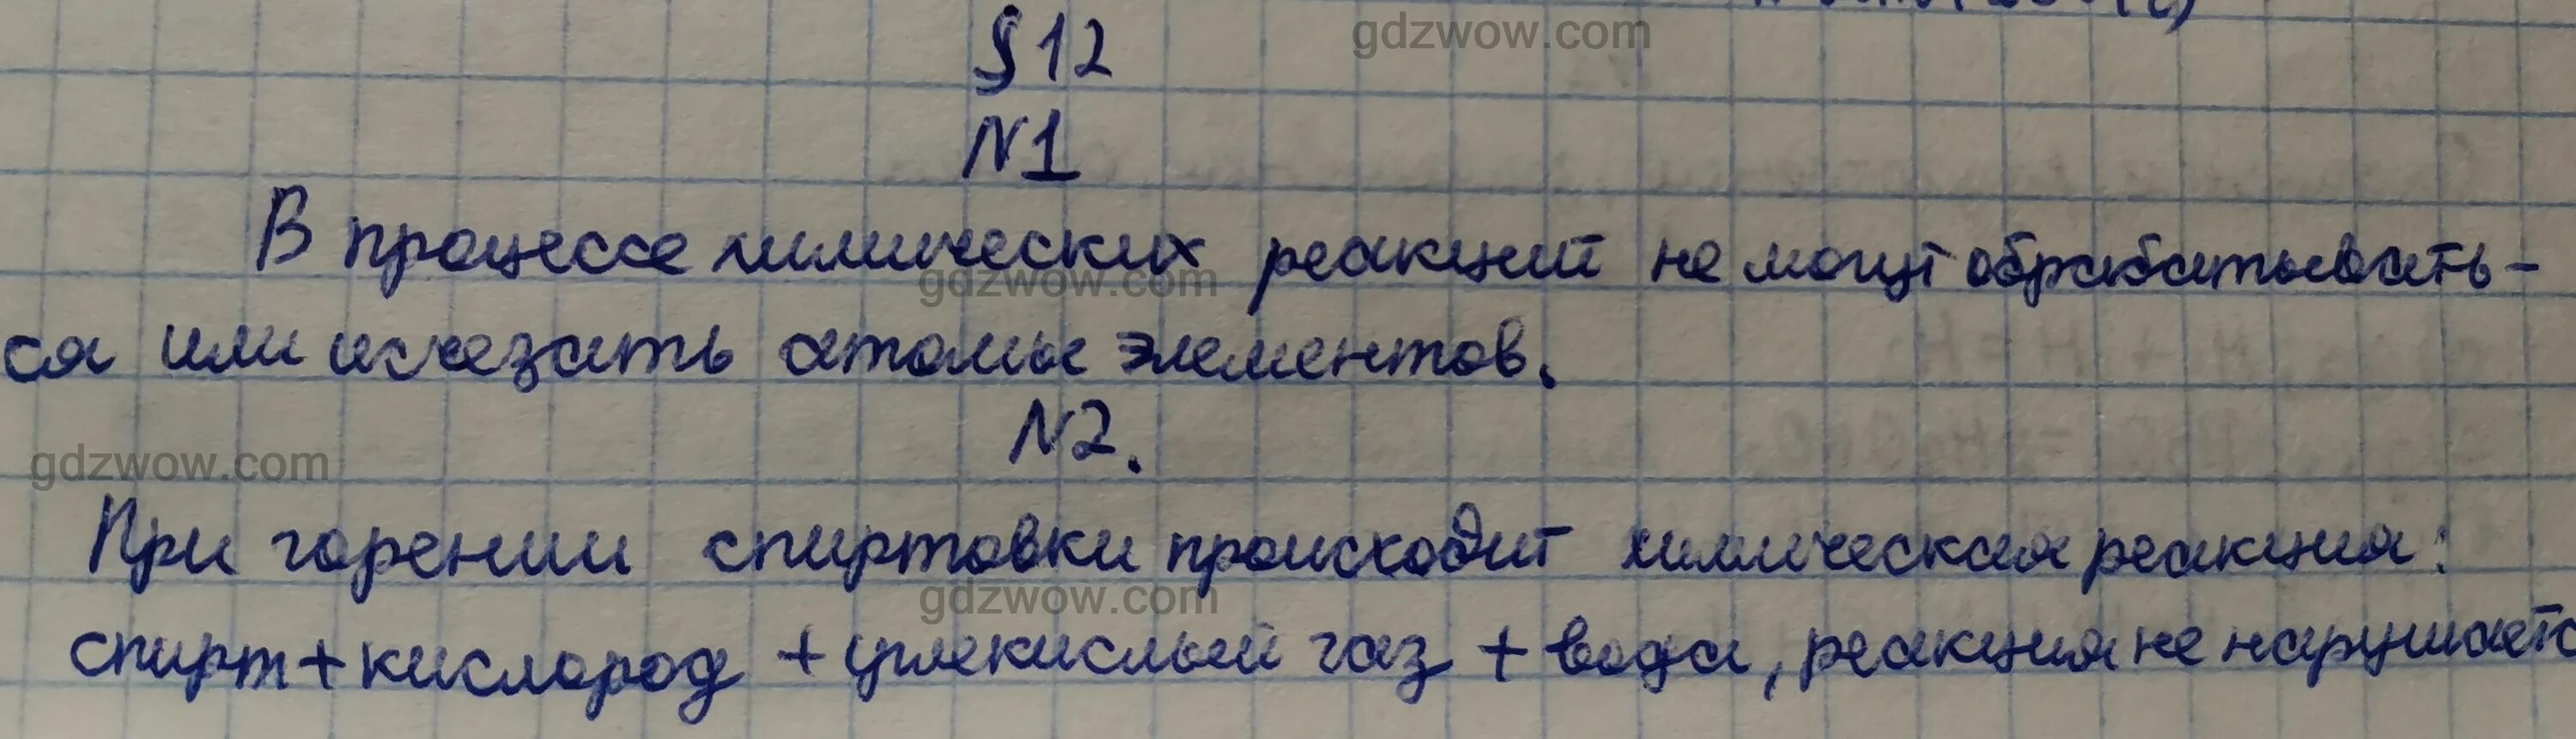 gdzwow.com
§12
N1
В процессе химических реакций не могут обрабатывать-
gdzwow.com
ся или исчезать атомы элементов.
N2.
gdzwow.com
При горении спиртовки происходит химическая реакция:
gdzwow.com
спирт+кислород + углекислый газ + вода, реакция не нарушаетс